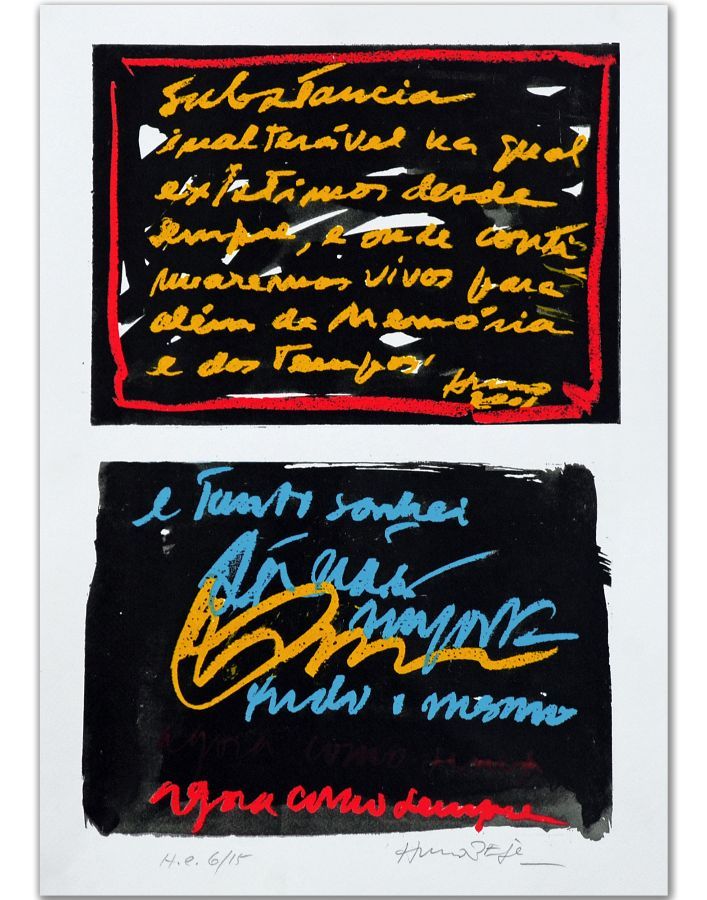 Substancia
inalterável na qual
existimos desde
sempre, e onde conti
nuaremos vivos para
além da Memória
e dos Tempos.
2001
e tanto sonhei
já não
importa
tudo o mesmo
agora como
agora como sempre
H.C. 6/15